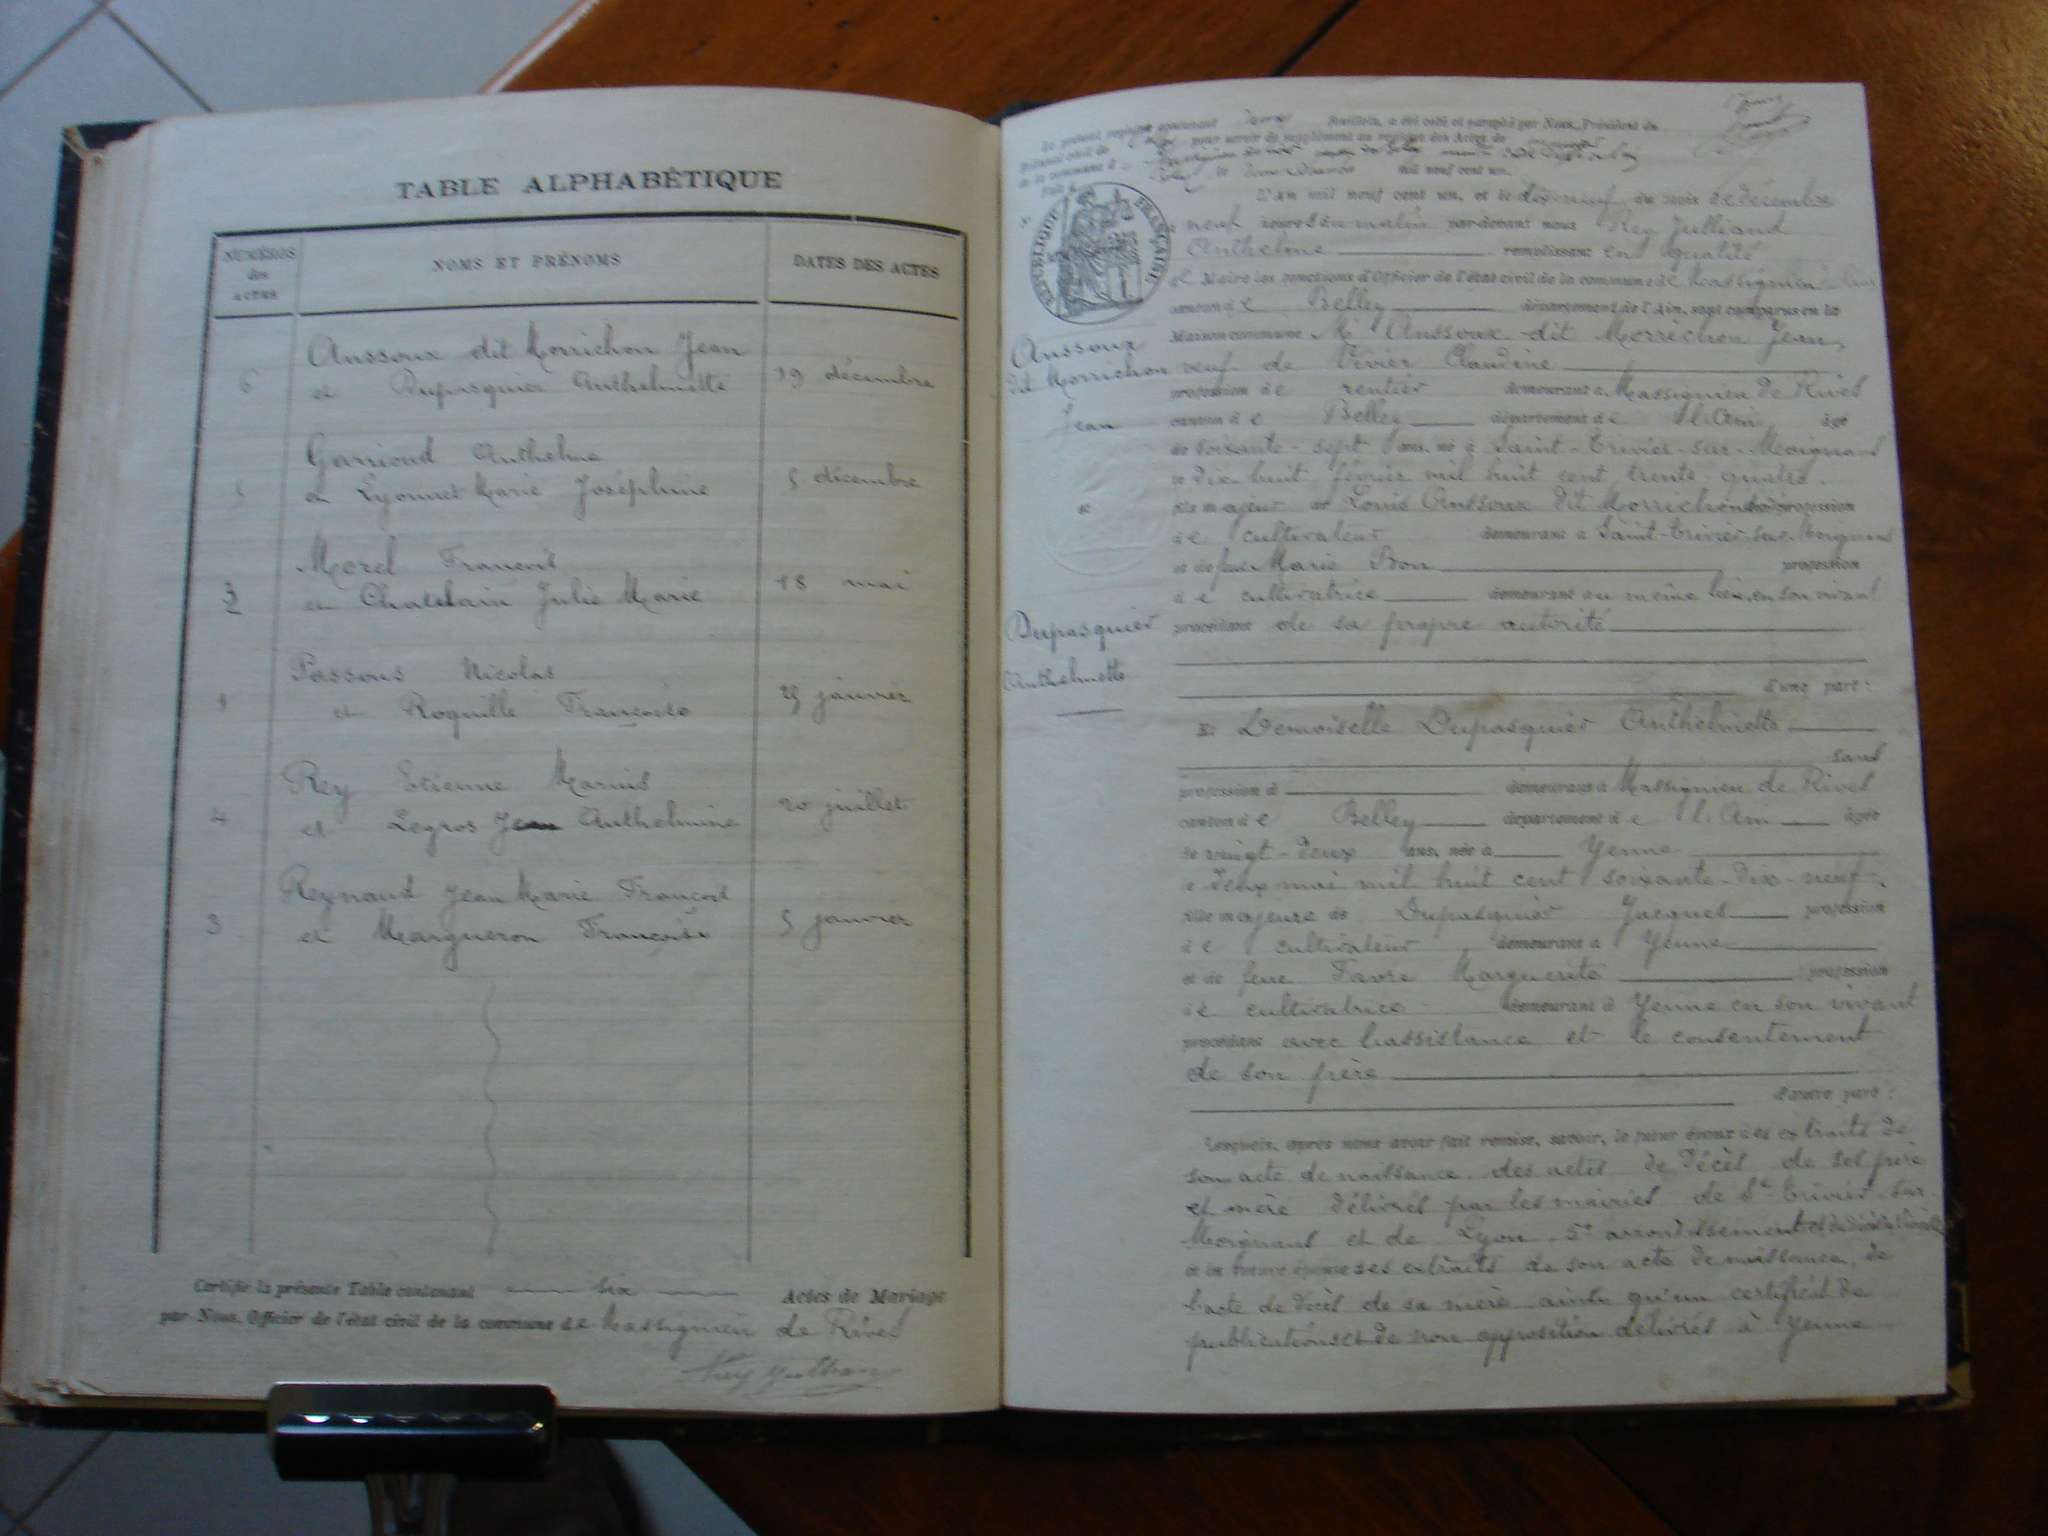 TABLE ALPHABÉTIQUE
NUMÉROS des ACTES
NOMS ET PRÉNOMS
DATES DES ACTES
6 Anssoux dit Morrichon Jean
et Dupasquier Anthelmette 19 décembre
5 Garrioud Anthelme
et Lyonnet Marie Joséphine 5 décembre
Morel François
et Chatelain Julie Marie 18 mai
1 Possous Nicolas
et Roquille Françoise janvier
4 Rey Etienne Marius
et Legros Anthelmine 20 juillet
3 Reynaud Jean Marie François
et Margueron Françoise 5 janvier
Certifié la présente Table contenant six Actes de Mariage
par Nous, Officier de l'état civil de la commune de Massignieu de Rives
Le présent registre contenant feuillets, a été coté et paraphé par Nous, Président du
tribunal civil de pour servir de supplément au registre des Actes de
de la commune de
Fait à le mil neuf cent un.
RÉPUBLIQUE FRANÇAISE
L'an mil neuf cent un, et le dix neuf du mois de décembre
à neuf heures du matin par-devant nous Rey Julliand
Anthelme remplissant en qualité
de Maire les fonctions d'Officier de l'état civil de la commune de Massignieu de Rives
canton de Belley département de l'Ain, sont comparus en la
Maison commune Mr Anssoux dit Morrichon Jean,
veuf de Vivier Claudine
profession de rentier demeurant à Massignieu de Rives
canton de Belley département de l'Ain âgé
de soixante-sept ans, né à Saint-Trivier-sur-Moignans
le dix huit février mil huit cent trente-quatre.
fils majeur de Louis Anssoux dit Morrichon profession
de cultivateur demeurant à Saint-Trivier-sur-Moignans
et de feue Marie Bon profession
de cultivatrice demeurant au même lieu, en son vivant
procédant de sa propre autorité
d'une part :
Anssoux
dit Morrichon
Jean
et
Dupasquier
Anthelmette
Et Demoiselle Dupasquier Anthelmette
sans
profession d demeurant à Massignieu de Rives
canton de Belley département de l'Ain âgée
de vingt-deux ans, née à Yenne
le deux mai mil huit cent soixante-dix-neuf.
fille majeure de Dupasquier Jacques profession
de cultivateur demeurant à Yenne
et de feue Favre Marguerite profession
de cultivatrice demeurant à Yenne en son vivant
procédant avec l'assistance et le consentement
de son frère
d'autre part :
Lesquels, après nous avoir fait remise, savoir, le futur époux des extraits de
son acte de naissance, des actes de décès de ses père
et mère délivrés par les mairies de St Trivier-sur-
Moignans et de Lyon, 5e arrondissement
et la future épouse des extraits de son acte de naissance, de
l'acte de décès de sa mère ainsi qu'un certificat de
publications et de non opposition délivrés à Yenne